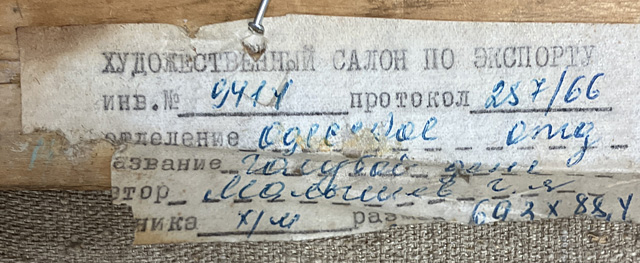 ХУДОЖЕСТВЕННЫЙ САЛОН ПО ЭКСПОРТУ
инв.№ 9411 протокол 287/66
отделение Одесское отд
азвание Голубой день
втор Малышев г. я
ника х/м разм 69 х 88,4